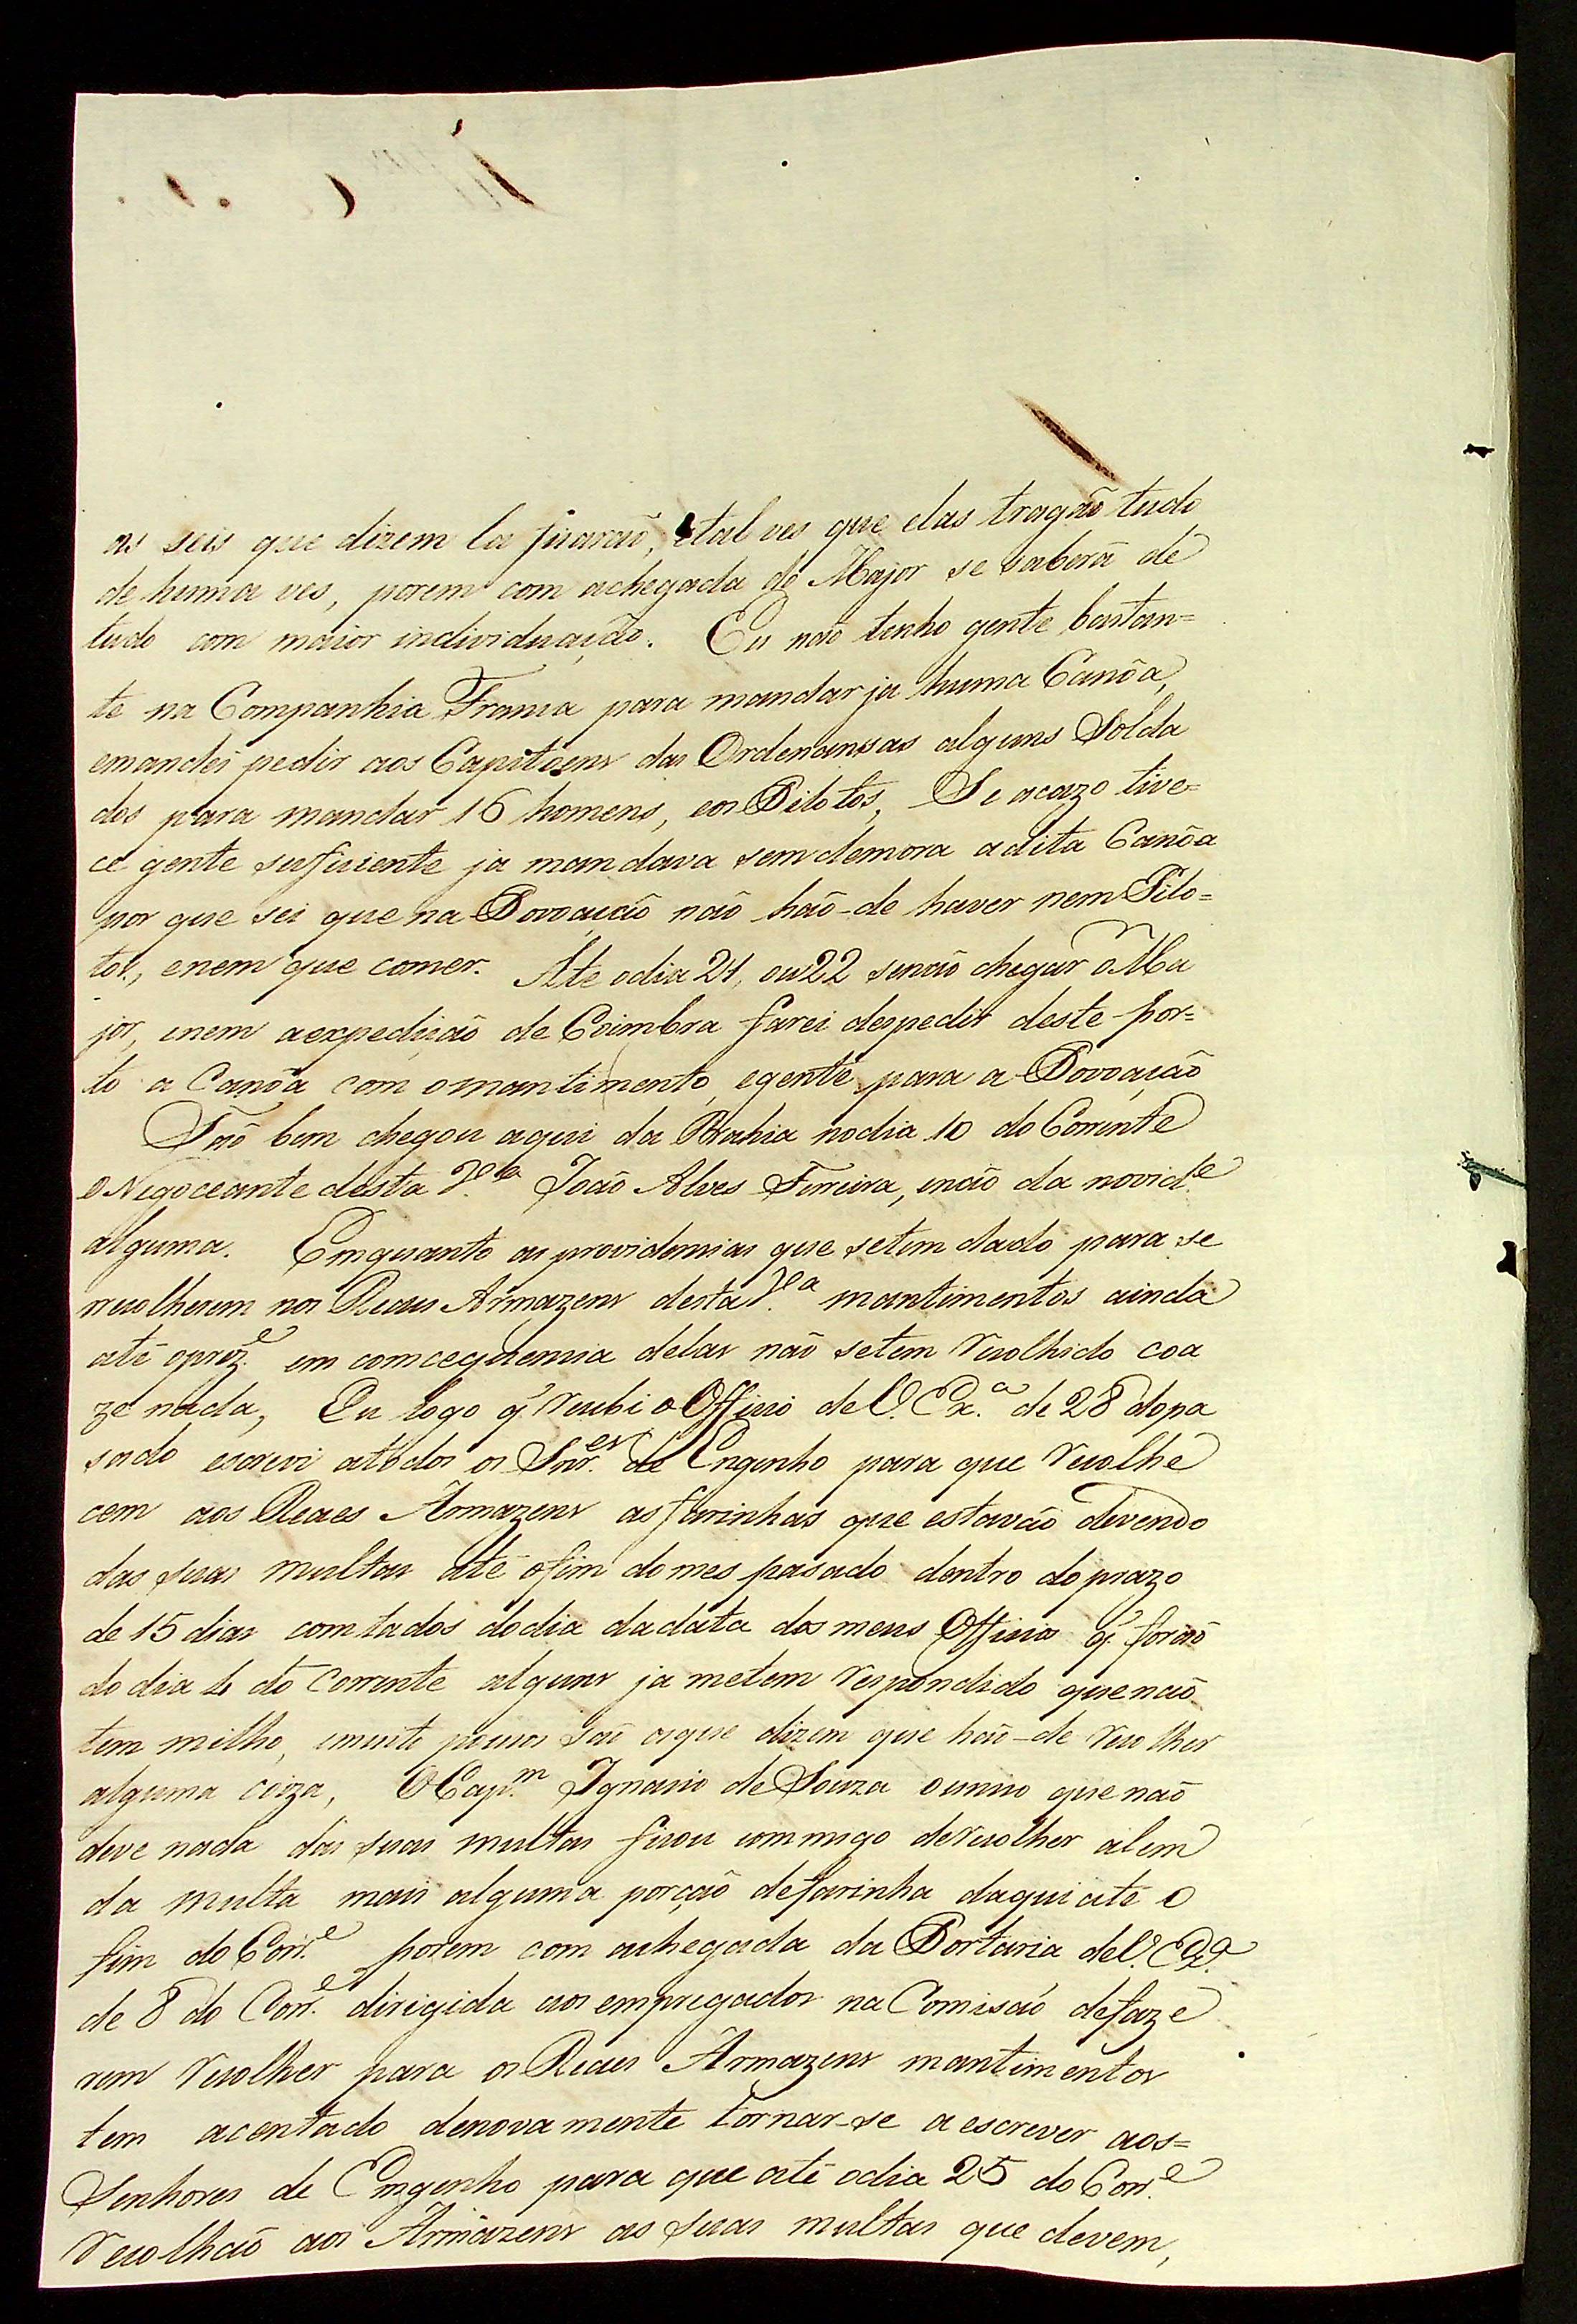 as seis que dizem la ficarão, etal ves que elas tragão tudo
de huma ves, porem com achegada do Major se saberá de
tudo com maior individuação. Eu não tenho gente bastan=
te na Companhia Franca para mandar ja huma Canôa,
emandei pedir aos Capitaens das Ordenansas alguns Solda
dos para mandar 16 homens, eos Pilotos, Se acazo tive=
ce gente suficiente ja mandava sem demora adita Canôa
por que sei que na Povoação não hão-de haver nem Pilo=
tos, enem que comer. Ate odia 21, ou 22 senão chegar o Ma
jor, enem aexpedição de Coimbra farei despedir deste por=
to a Canôa com omantimento, egente para a Povoação
Tão bem chegou aqui da Bahia nodia 10 do Corrente
o Negoceante desta V.ª João Alves Ferreira, enão da novid.e
alguma. Emquanto as providencias que setem dado para se
recolherem nos Reaes Armazens desta V.ª mantimentos ainda
até oprez.e em comcequencia delas não setem recolhido coa
ze nada, Eu logo q' recebi o Officio de V. Ex.ª de 28 dopa
sado escrevi atodos os Snr.es de Engenho para que recolhe
cem aos Reaes Armazens as farinhas que estavão devendo
das suas multas até ofim do mes pasado dentro do prazo
de 15 dias comtados dodia dadata dos meus Officios q' forão
do dia 4 do Corrente alguns ja metem respondido que não
tem milho, emuito poucos são os que dizem que hão-de recolher
alguma coiza, O Cap.m Ignacio de Souza o unico que não
deve nada das suas multas ficou commigo de recolher alem
da multa mais alguma porção defarinha daqui até o
fim do Corr.e porem com achegada da Portaria de V. Ex.ª
de 8 do Corr.e dirigida aos empregados na Comisão defaze
rem recolher para os Reaes Armazens mantimentos
tem acentado denovamente tornar-se a escrever aos=
Senhores de Emgenho para que até odia 25 do Corr.e
recolhão aos Armazens as suas multas que devem,